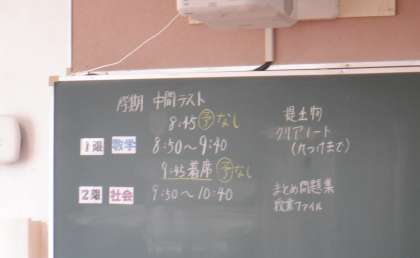 中間テスト
8:45 予なし
1限 数学 8:50〜9:40
9:45着席 予なし
2限 社会 9:50〜10:40
提出物
クリアノート
まとめ問題集
授業ファイル